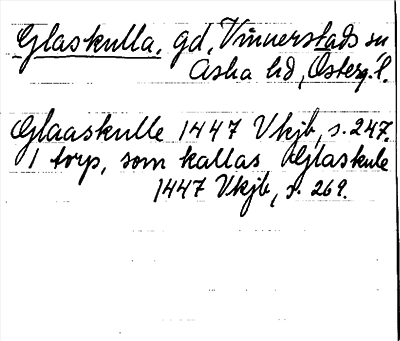 Glaskulla, gd, Vinnerstads sn
Aska hd, Österg. l.
Glaaskulle 1447 Vkjb, s. 247.
1 torp, som kallas Glaskule
1447 Vkjb, s. 269.